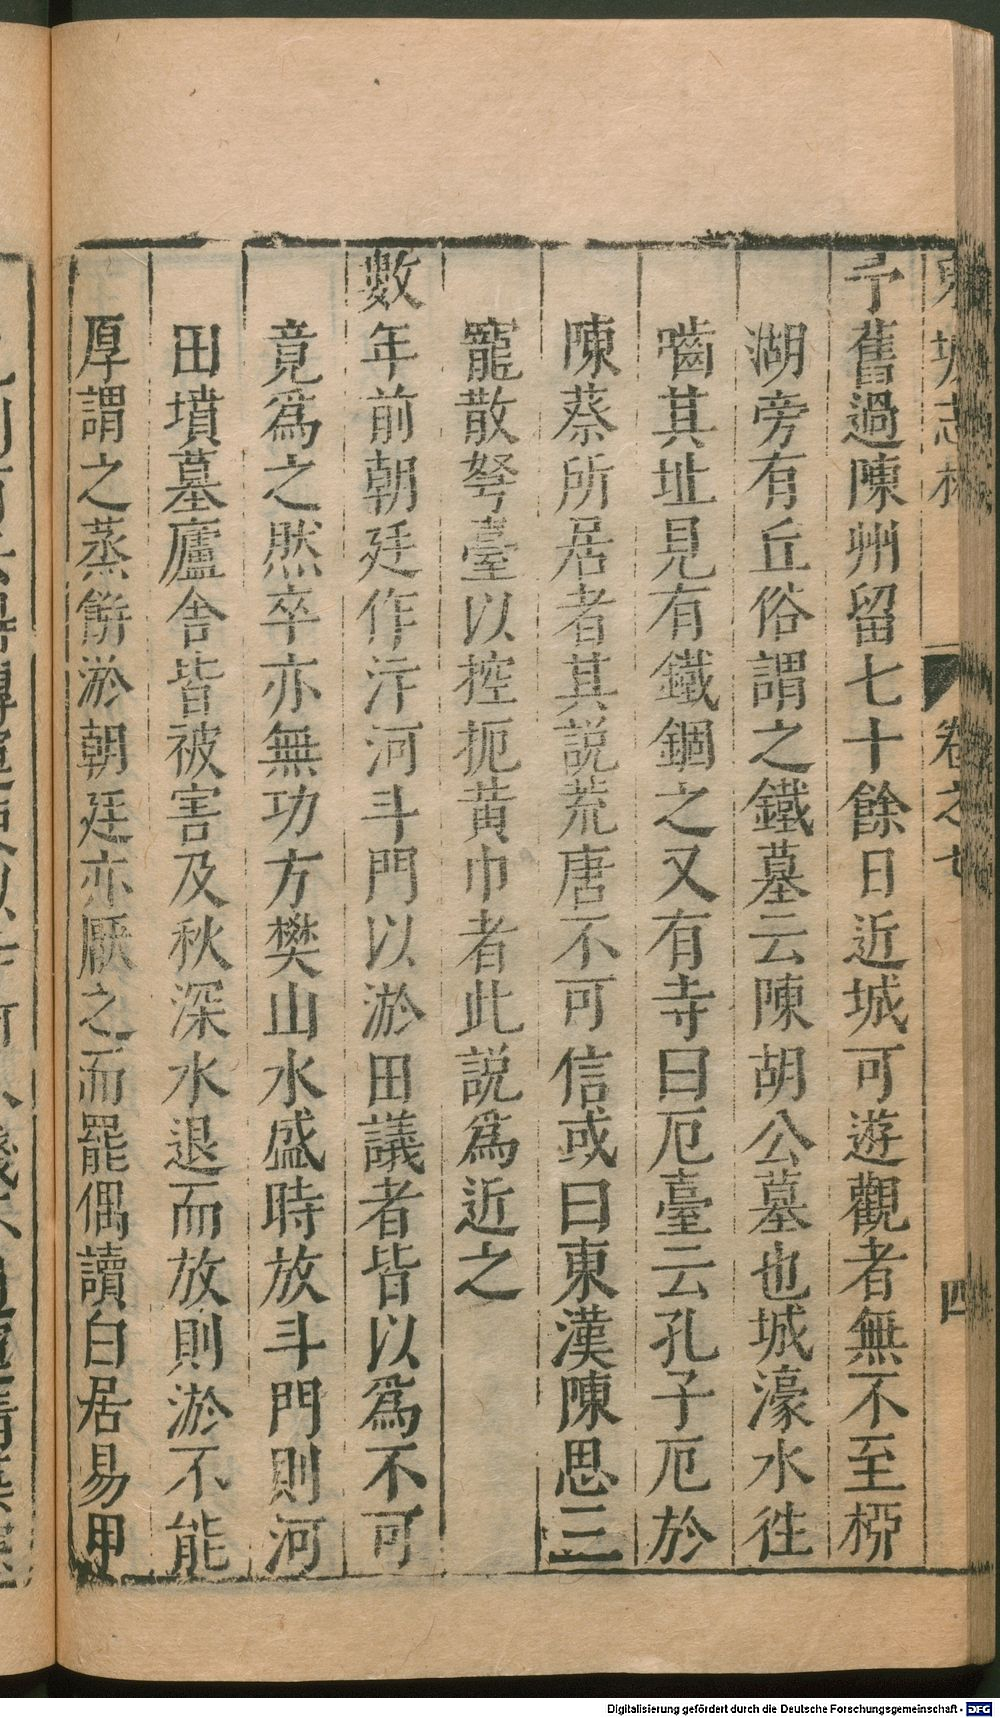 東坡志林 卷之七 四
予舊過陳州留七十餘日近城可遊觀者無不至柳
湖旁有丘俗謂之鐵墓云陳胡公墓也城濠水往
嚙其址見有鐵錮之又有寺曰厄臺云孔子厄於
陳蔡所居者其説荒唐不可信或曰東漢陳思王
寵散弩臺以控扼黃巾者此説爲近之
數年前朝廷作汴河斗門以淤田議者皆以爲不可
竟爲之然卒亦無功方樊山水盛時放斗門則河
田墳墓廬舍皆被害及秋深水退而放則淤不能
厚謂之蒸餅淤朝廷亦厭之而罷偶讀白居易甲
Digitalisierung gefördert durch die Deutsche Forschungsgemeinschaft - DFG